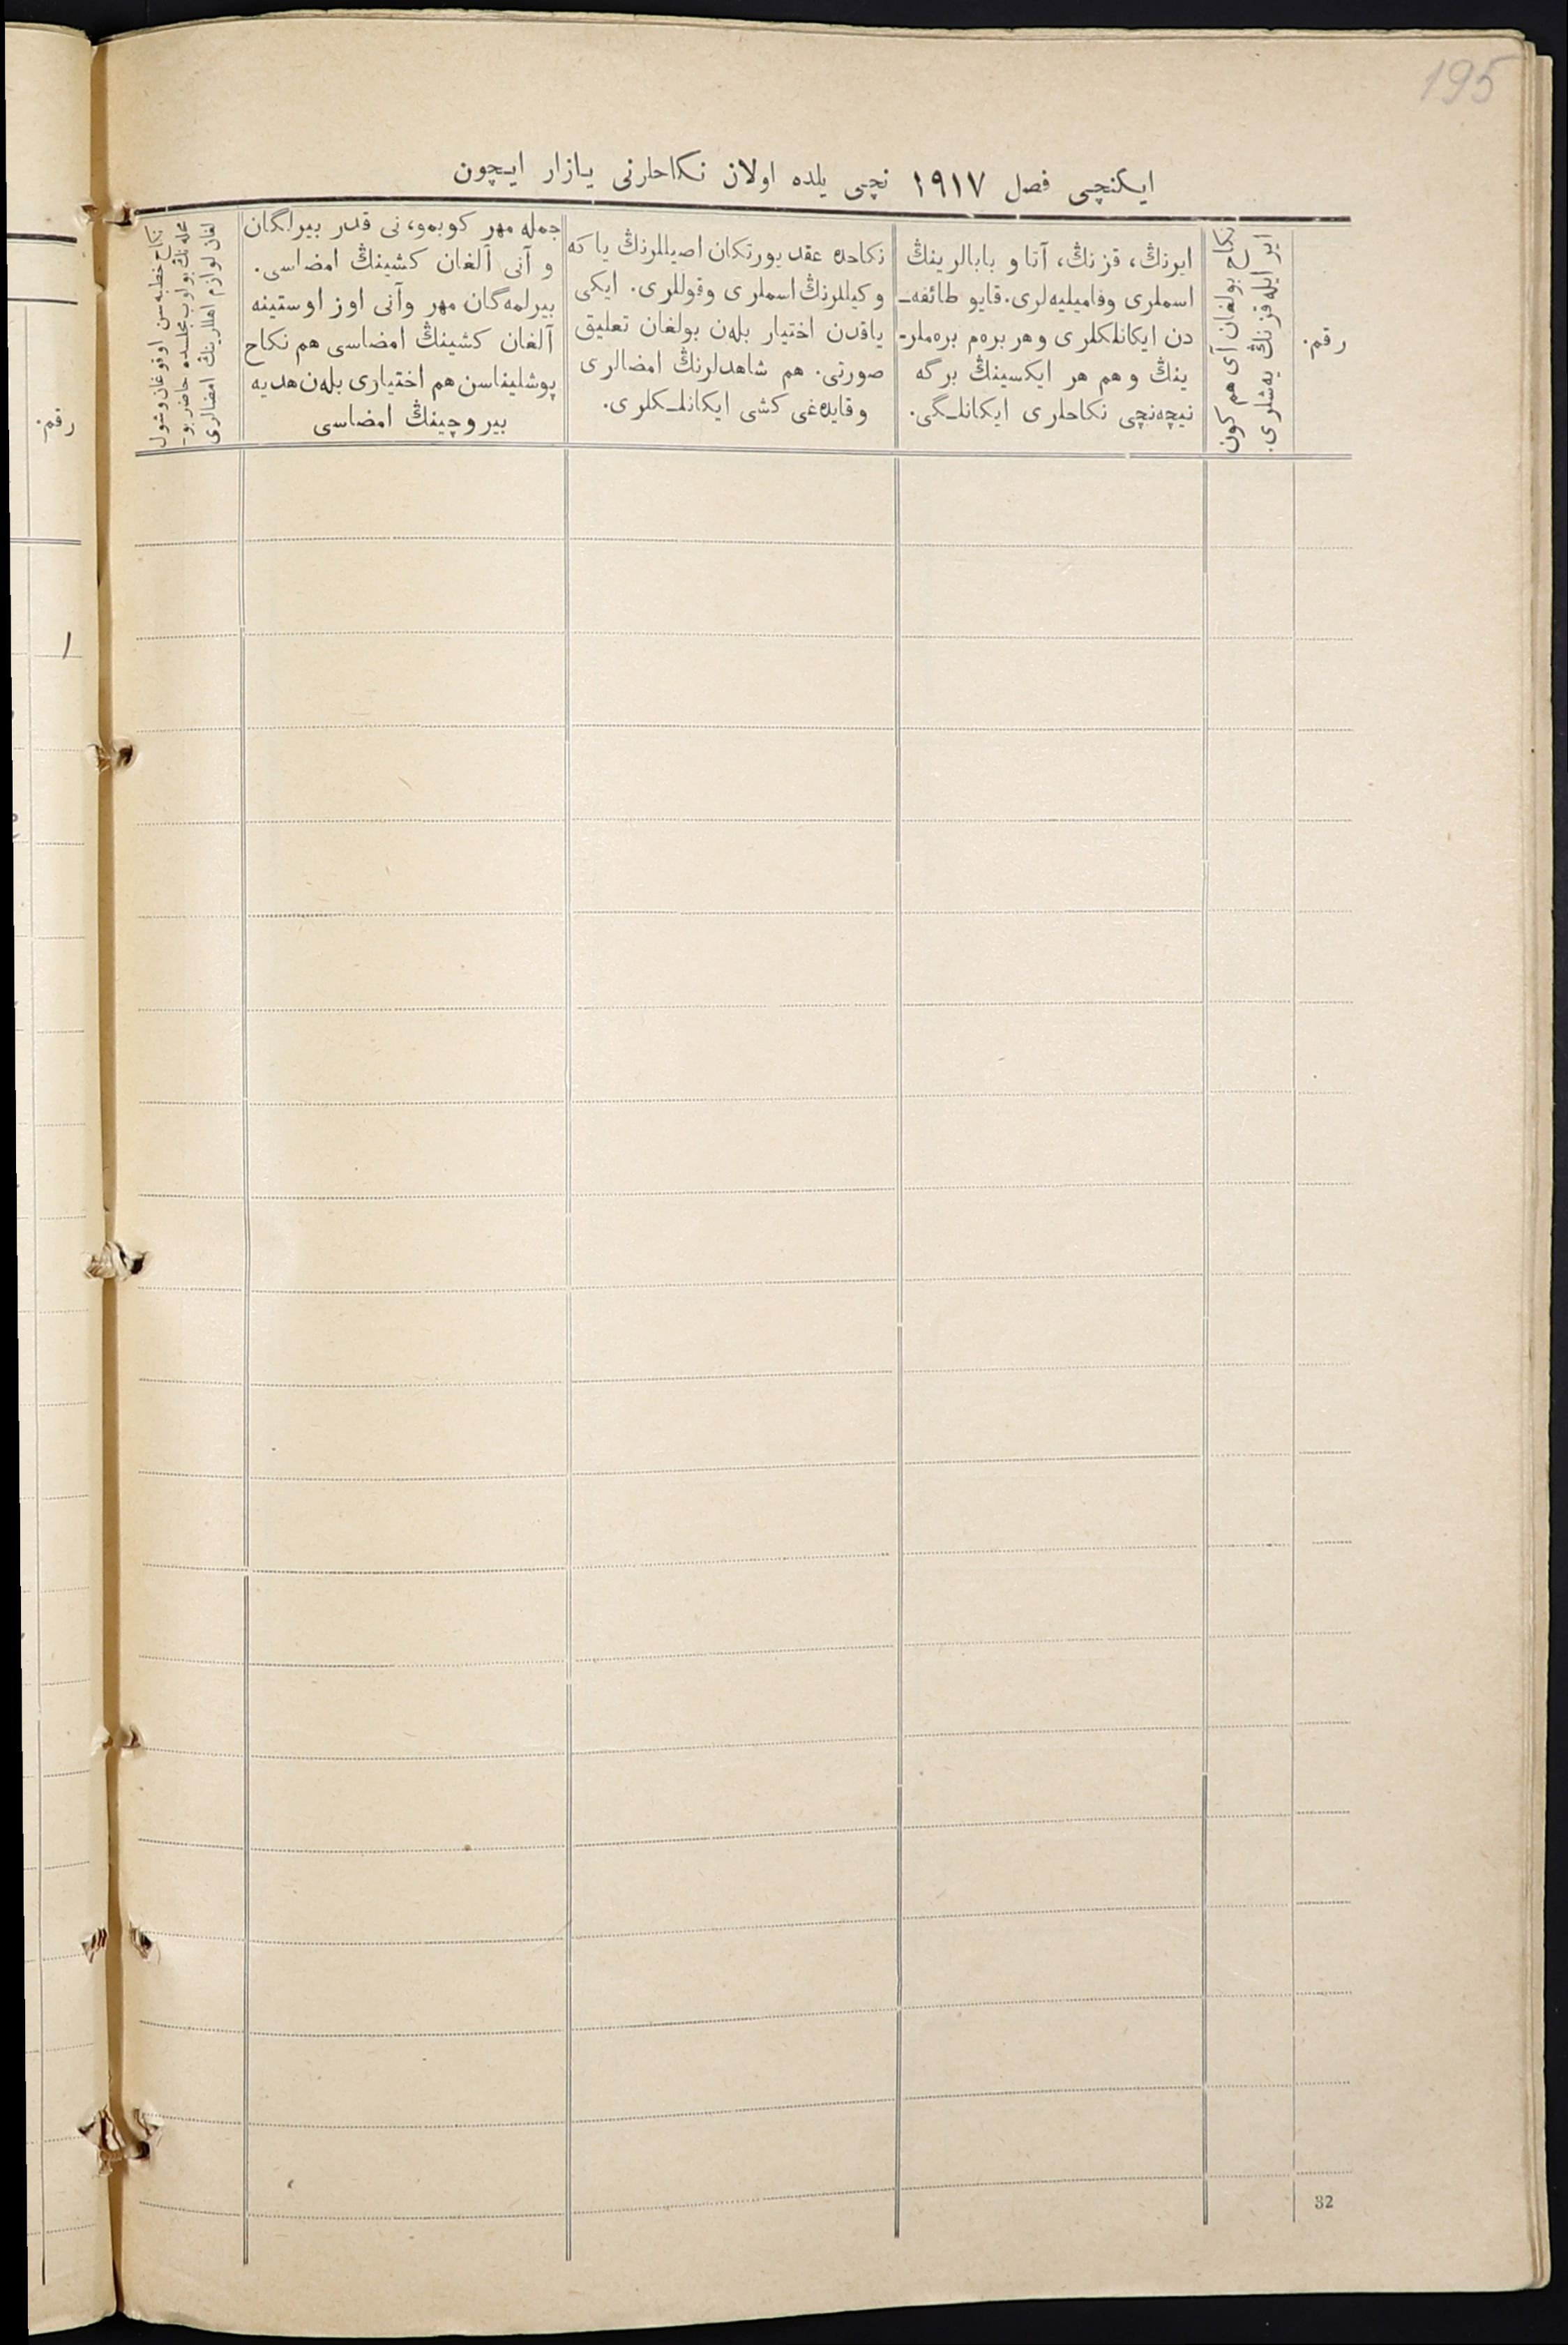 195
ایکنچی فصل ۱۹۱۷ نچی یلده اولان نکاحلرنی یازار ایچون
رقم.
نکاح بولغان آی هم کون
ایر ایله قزنڭ یه‌شلری.
ایرنڭ، قزنڭ، آنا و بابالرینڭ
اسملری وفامیلیه‌لری. قایو طائفه‌ـ
دن ایکانلکلری وهر بره‌م بره‌ملرـ
ینڭ وهم هر ایکسینڭ برگه
نیچه‌نچی نکاحلری ایکانلـگی.
نکاحده عقد یورتکان اصیللرنڭ یا که
وکیللرنڭ اسملری وقوللری. ایکی
یاقدن اختیار بله‌ن بولغان تعلیق
صورتی. هم شاهدلرنڭ امضالری
وقایده‌غی کشی ایکانلـکلری.
جمله مهر کوبمو، نی قدر بیرلگان
و آنی آلغان کشینڭ امضاسی.
بیرلمه‌گان مهر وآنی اوز اوستینه
آلغان کشینڭ امضاسی هم نکاح
پوشلیناسن هم اختیاری بله‌ن هدیه
بیروچینڭ امضاسی
نکاح خطبه‌سن اوقوغان وشول
محله‌نڭ بولوب مجلسده حاضر بوـ
لغان لوازم اهللرینڭ امضالری
رقم.
۱
32